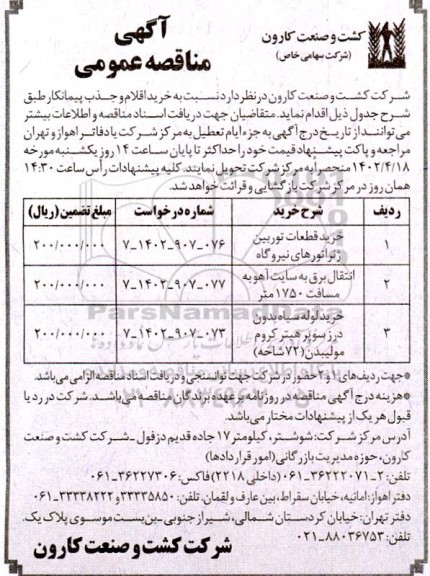 کشت و صنعت کارون
(شرکت سهامی خاص)
آگهی
مناقصه عمومی
شرکت کشت و صنعت کارون در نظر دارد نسبت به خرید اقلام و جذب پیمانکار طبق
شرح جدول ذیل اقدام نماید. متقاضیان جهت دریافت اسناد مناقصه و اطلاعات بیشتر
می‌توانند از تاریخ درج آگهی به جز ایام تعطیل به مرکز شرکت یا دفاتر اهواز و تهران
مراجعه و پاکت پیشنهاد قیمت خود را حداکثر تا پایان ساعت ۱۴ روز یکشنبه مورخه
۱۴۰۲/۴/۱۸ منحصراً به مرکز شرکت تحویل نمایند. کلیه پیشنهادات رأس ساعت ۱۴:۳۰
همان روز در مرکز شرکت بازگشایی و قرائت خواهد شد.
ردیف شرح خرید شماره درخواست مبلغ تضمین (ریال)
۱ خرید قطعات توربین ژنراتورهای نیروگاه ۷_۱۴۰۲_۹۰۷_۰۷۶ ۲۰۰/۰۰۰/۰۰۰
۲ انتقال برق به سایت آهو به مسافت ۱۷۵۰ متر ۷_۱۴۰۲_۹۰۷_۰۷۷ ۲۰۰/۰۰۰/۰۰۰
۳ خرید لوله سیاه بدون درز سوپر هیتر کروم مولیبدن (۷۲ شاخه) ۷_۱۴۰۲_۹۰۷_۰۷۳ ۲۰۰/۰۰۰/۰۰۰
ParsNamadData
*جهت ردیف‌های ۱ و ۲ حضور در شرکت جهت توانسنجی و دریافت اسناد مناقصه الزامی می‌باشد.
*هزینه درج آگهی مناقصه در روزنامه برعهده برندگان مناقصه می‌باشد. شرکت در رد یا
قبول هر یک از پیشنهادات مختار می‌باشد.
آدرس مرکز شرکت: شوشتر، کیلومتر ۱۷ جاده قدیم دزفول _ شرکت کشت و صنعت
کارون، حوزه مدیریت بازرگانی (امور قراردادها)
تلفن: ۲_۳۶۲۲۲۰۷۱_۰۶۱ (داخلی ۲۲۱۸) فاکس: ۳۶۲۲۷۳۰۶_۰۶۱
دفتر اهواز: امانیه، خیابان سقراط، بین عارف و لقمان. تلفن: ۳۳۳۳۵۸۵۰ و ۳۳۳۳۸۲۲۲_۰۶۱
دفتر تهران: خیابان کردستان شمالی، شیراز جنوبی _ بن‌بست موسوی پلاک یک.
تلفن: ۸۸۰۳۶۷۵۳_۰۲۱
شرکت کشت و صنعت کارون